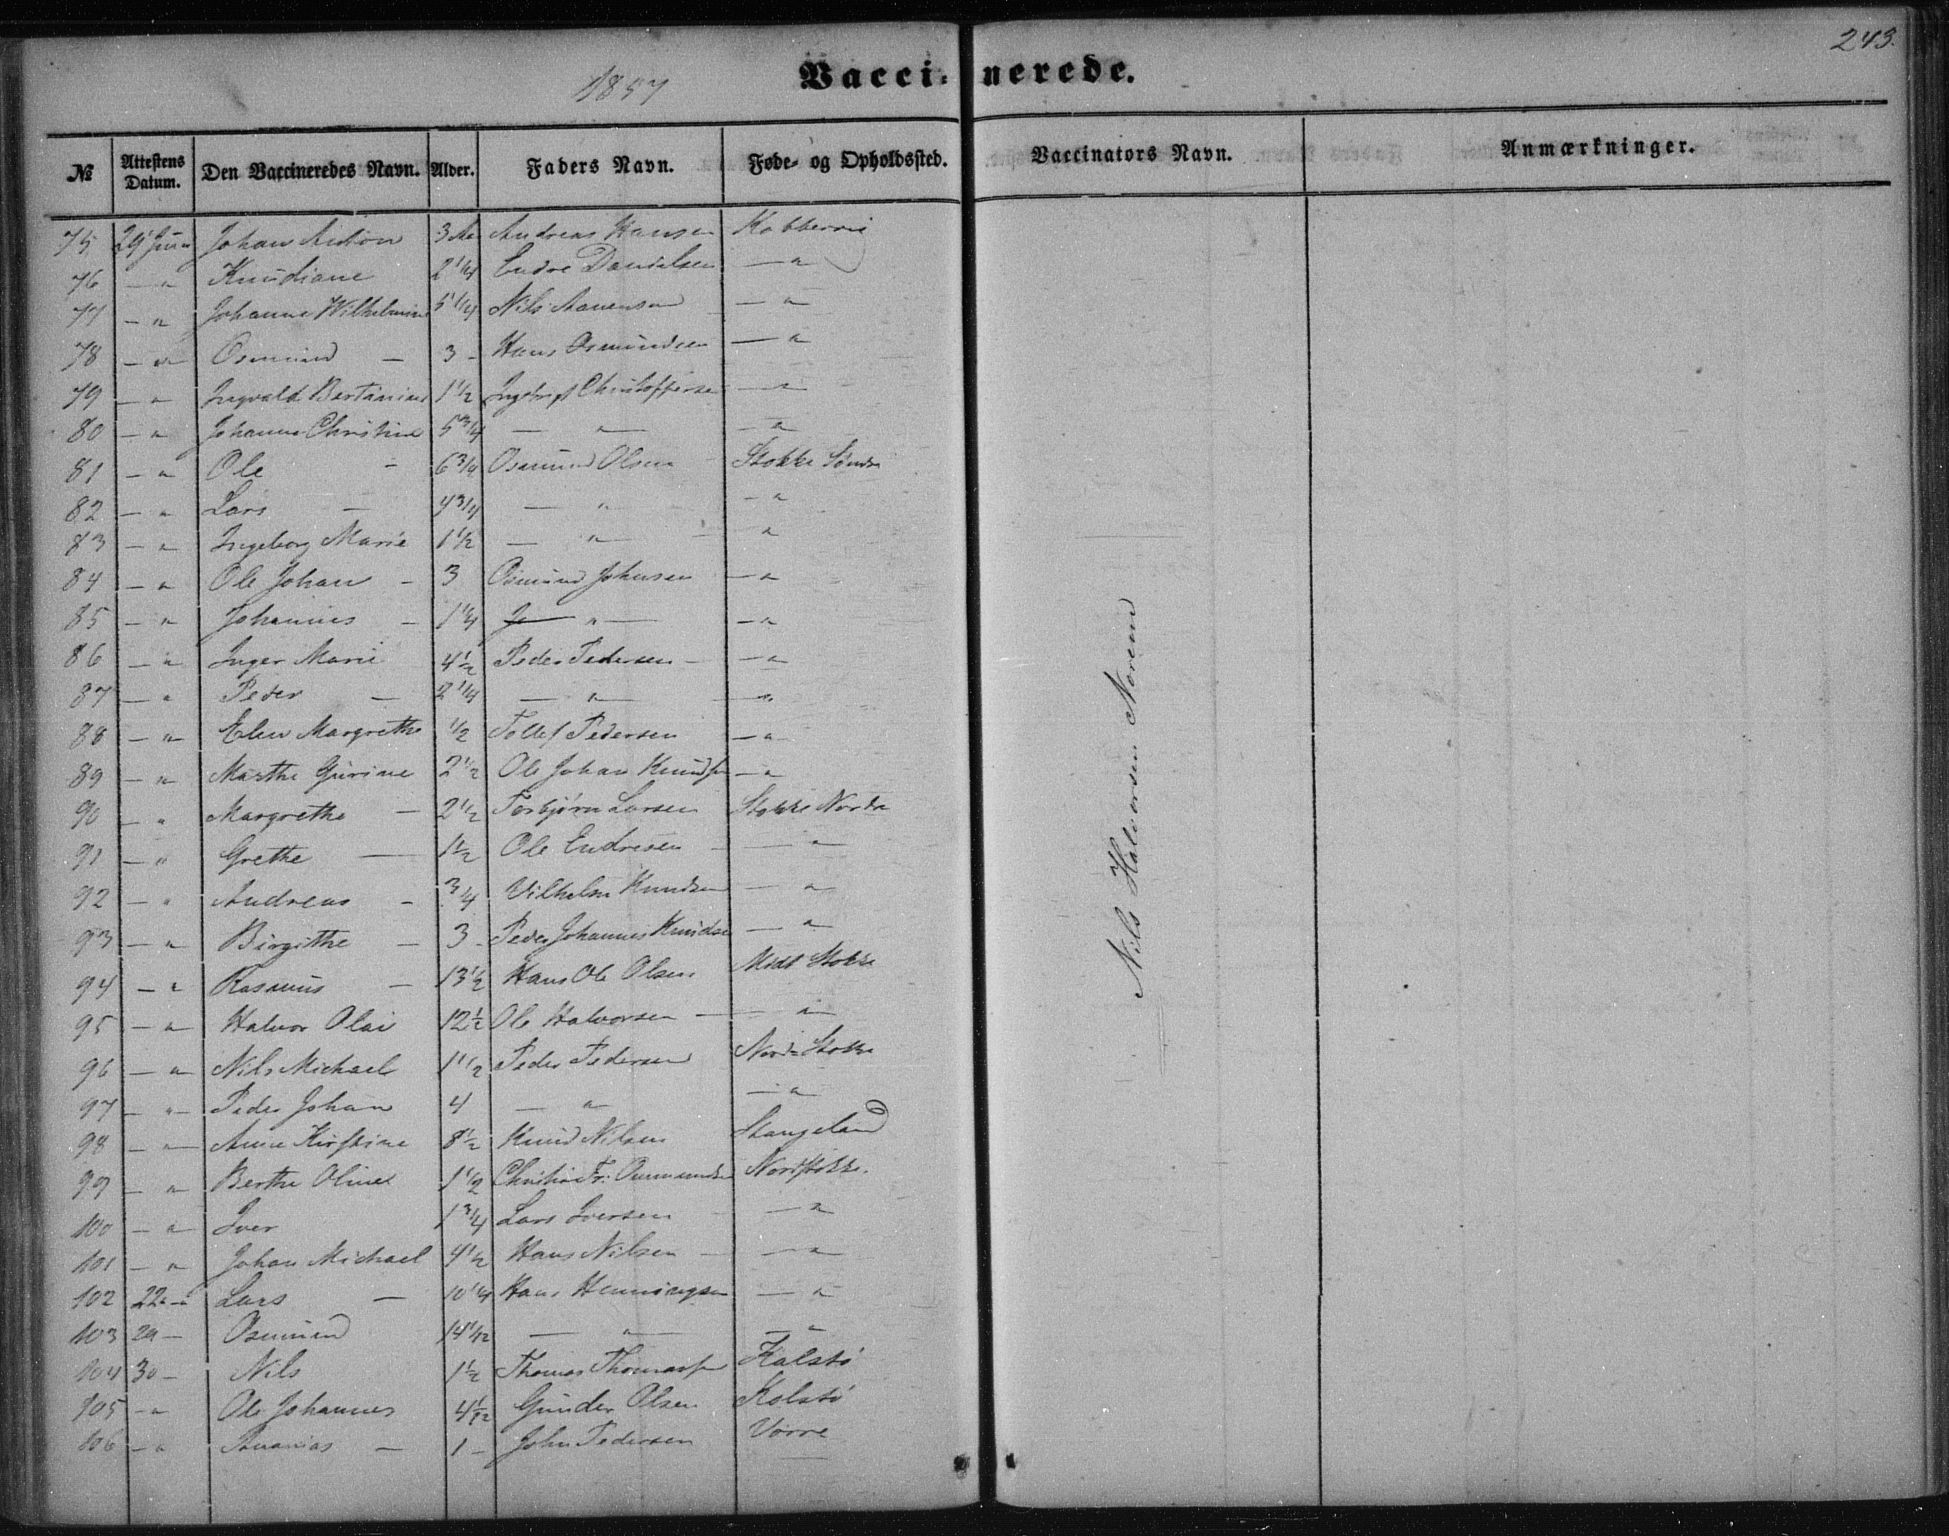 243.
1857
Vaccinerede.
№ Attestens Datum. Den Vaccineredes Navn. Alder. Faders Navn. Føde- og Opholdssted. Vaccinators Navn. Anmærkninger.
75 29 Juni Johan Anton 3 Aa Andreas Hansen Kobbervig
76 — " Knudiane 2 1/4 Endre Danielsen — "
77 — " Johanne Wilhelmine 5 1/4 Nils — "
78 — " Osmund — 3 - Hans Osmundsen — "
79 — " Ingvald Bertinius 1 1/2 Christoffersen — "
80 — " Johanne Christine 5 3/4 — " — — "
81 — " Ole - 6 3/4 Osmund Olsen Stokke Søndre
82 — " Lars — 4 3/4 — " — "
83 — " Ingeborg Marie 1 1/2 — " — "
84 — " Ole Johan - 3 Osmund Johnsen — "
85 — " Johannes - 1 1/4 — " — — "
86 — " Inger Marie 4 1/2 Peder Pedersen — — "
87 — " Peder — 2 1/4 — " — — "
88 — " Elen Margrethe 1/2 Tollef Pedersen — "
89 — " Marthe Gurine 2 1/2 Ole Johan Knudsen — "
90 — " Margrethe — 2 1/2 Torbjørn Larsen Stokke Nordre
91 — " Grethe — 1 1/2 Ole Endresen — "
92 — " Andreas - 3/4 Vilhelm Knudsen — "
93 — " Birgithe — 3 - Peder Johannes Knudsen — "
94 — " Rasmus — 13 1/2 Hans Ole Olsen Midt Stokke
95 — " Halvor Olai 12 1/2 Ole Halvorsen — "
96 — " Nils Michael 1 1/2 Peder Pedersen Nord Stokke
97 — " Peder Johan 4 — " — "
98 — " Anne Kirstine 8 1/2 Knud Nilsen Stangeland
99 — " Berthe Oline 1 1/2 Christian Fr: Nordstokke.
100 — " Iver 1 3/4 Lars Iversen — "
101 — " Johan Michael 4 1/2 Hans Nilsen — — "
102 22 — " Lars — 10 1/4 Hans Henningsen — "
103 29 — Osmund 14 1/12 — " — — "
104 30 — Nils 1 1/2 Thomas Thomassen Kalstø
105 — " Ole Johannes 4 1/12 Gunder Olsen Kolstø
106 — " Ananias — 1 - John Pedersen Vorre
Nils Halvorsen Norem